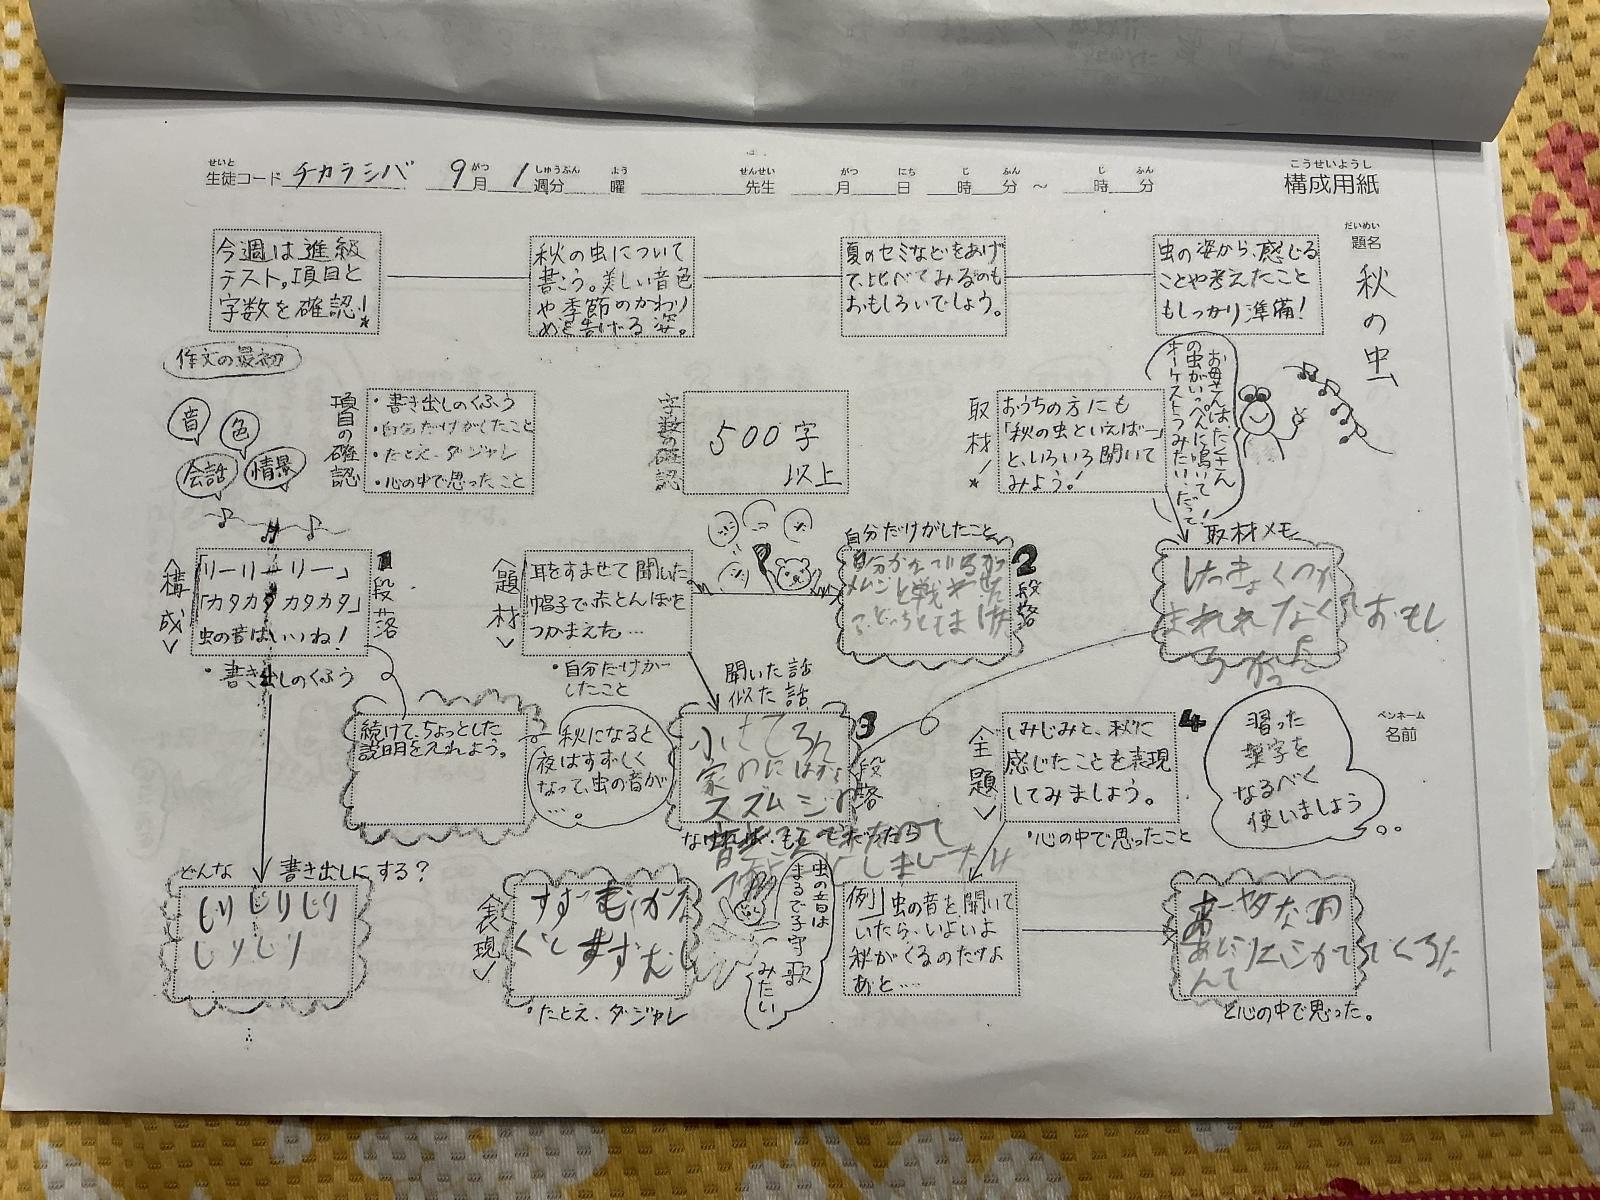 こうせいようし
構成用紙
せいと がつ しゅうぶん よう せんせい がつ にち じ ふん じ ふん
生徒コード チカラシバ 9月 1週分 曜 先生 月 日 時 分～ 時 分
だいめい
題名
秋の虫
今週は進級
テスト。項目と
字数を確認！
秋の虫について
書こう。美しい音色
や季節のかわり
めを告げる姿。
夏のセミなどをあげ
て、比べてみるのも
おもしろいでしょう。
虫の姿から、感じる
ことや考えたこと
もしっかり準備！
作文の最初
音
色
会話
情景
項目の確認
・書き出しのくふう
・自分だけがしたこと
・たとえ、ダジャレ
・心の中で思ったこと
字数の確認
500字
以上
取材！
おうちの方にも
「秋の虫といえば…」
と、いろいろ聞いて
みよう！
お母さんはたくさん
の虫がいっぺんに鳴いて
オーケストラみたいだって！
構成
「リーリーリー」
「カタカタカタカタ」
虫の音はいいね！
1段落
・書き出しのくふう
題材
耳をすませて聞いた、
帽子で赤とんぼを
つかまえた…
・自分だけが
したこと
自分だけがしたこと
2段落
取材メモ
おもし
続けて、ちょっとした
説明を入れよう。
秋になると
夜はすずしく
なって、虫の音が
…。
聞いた話
似た話
小さてろん
スズムシ
3段落
全題
しみじみと、秋に
感じたことを表現
してみましょう。
4
・心の中で思ったこと
ペンネーム
名前
習った
漢字を
なるべく
使いましょう
どんな書き出しにする？
じりじりじり
じりじり
表現
・たとえ、ダジャレ
虫の音は
まるで子守歌
みたい
例 虫の音を聞いて
いたら、いよいよ
秋がくるのだなよ
あと…
と心の中で思った。